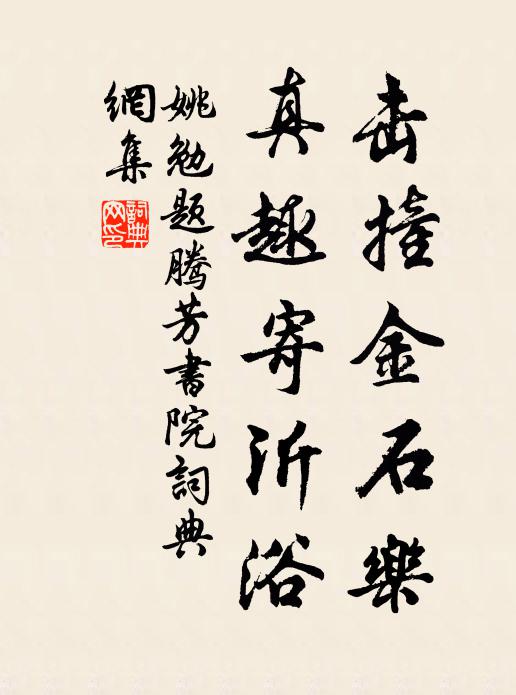 击撞金石樂
真趣寄沂浴
姚勉题腾芳書院詞典
網集
詞典
网印